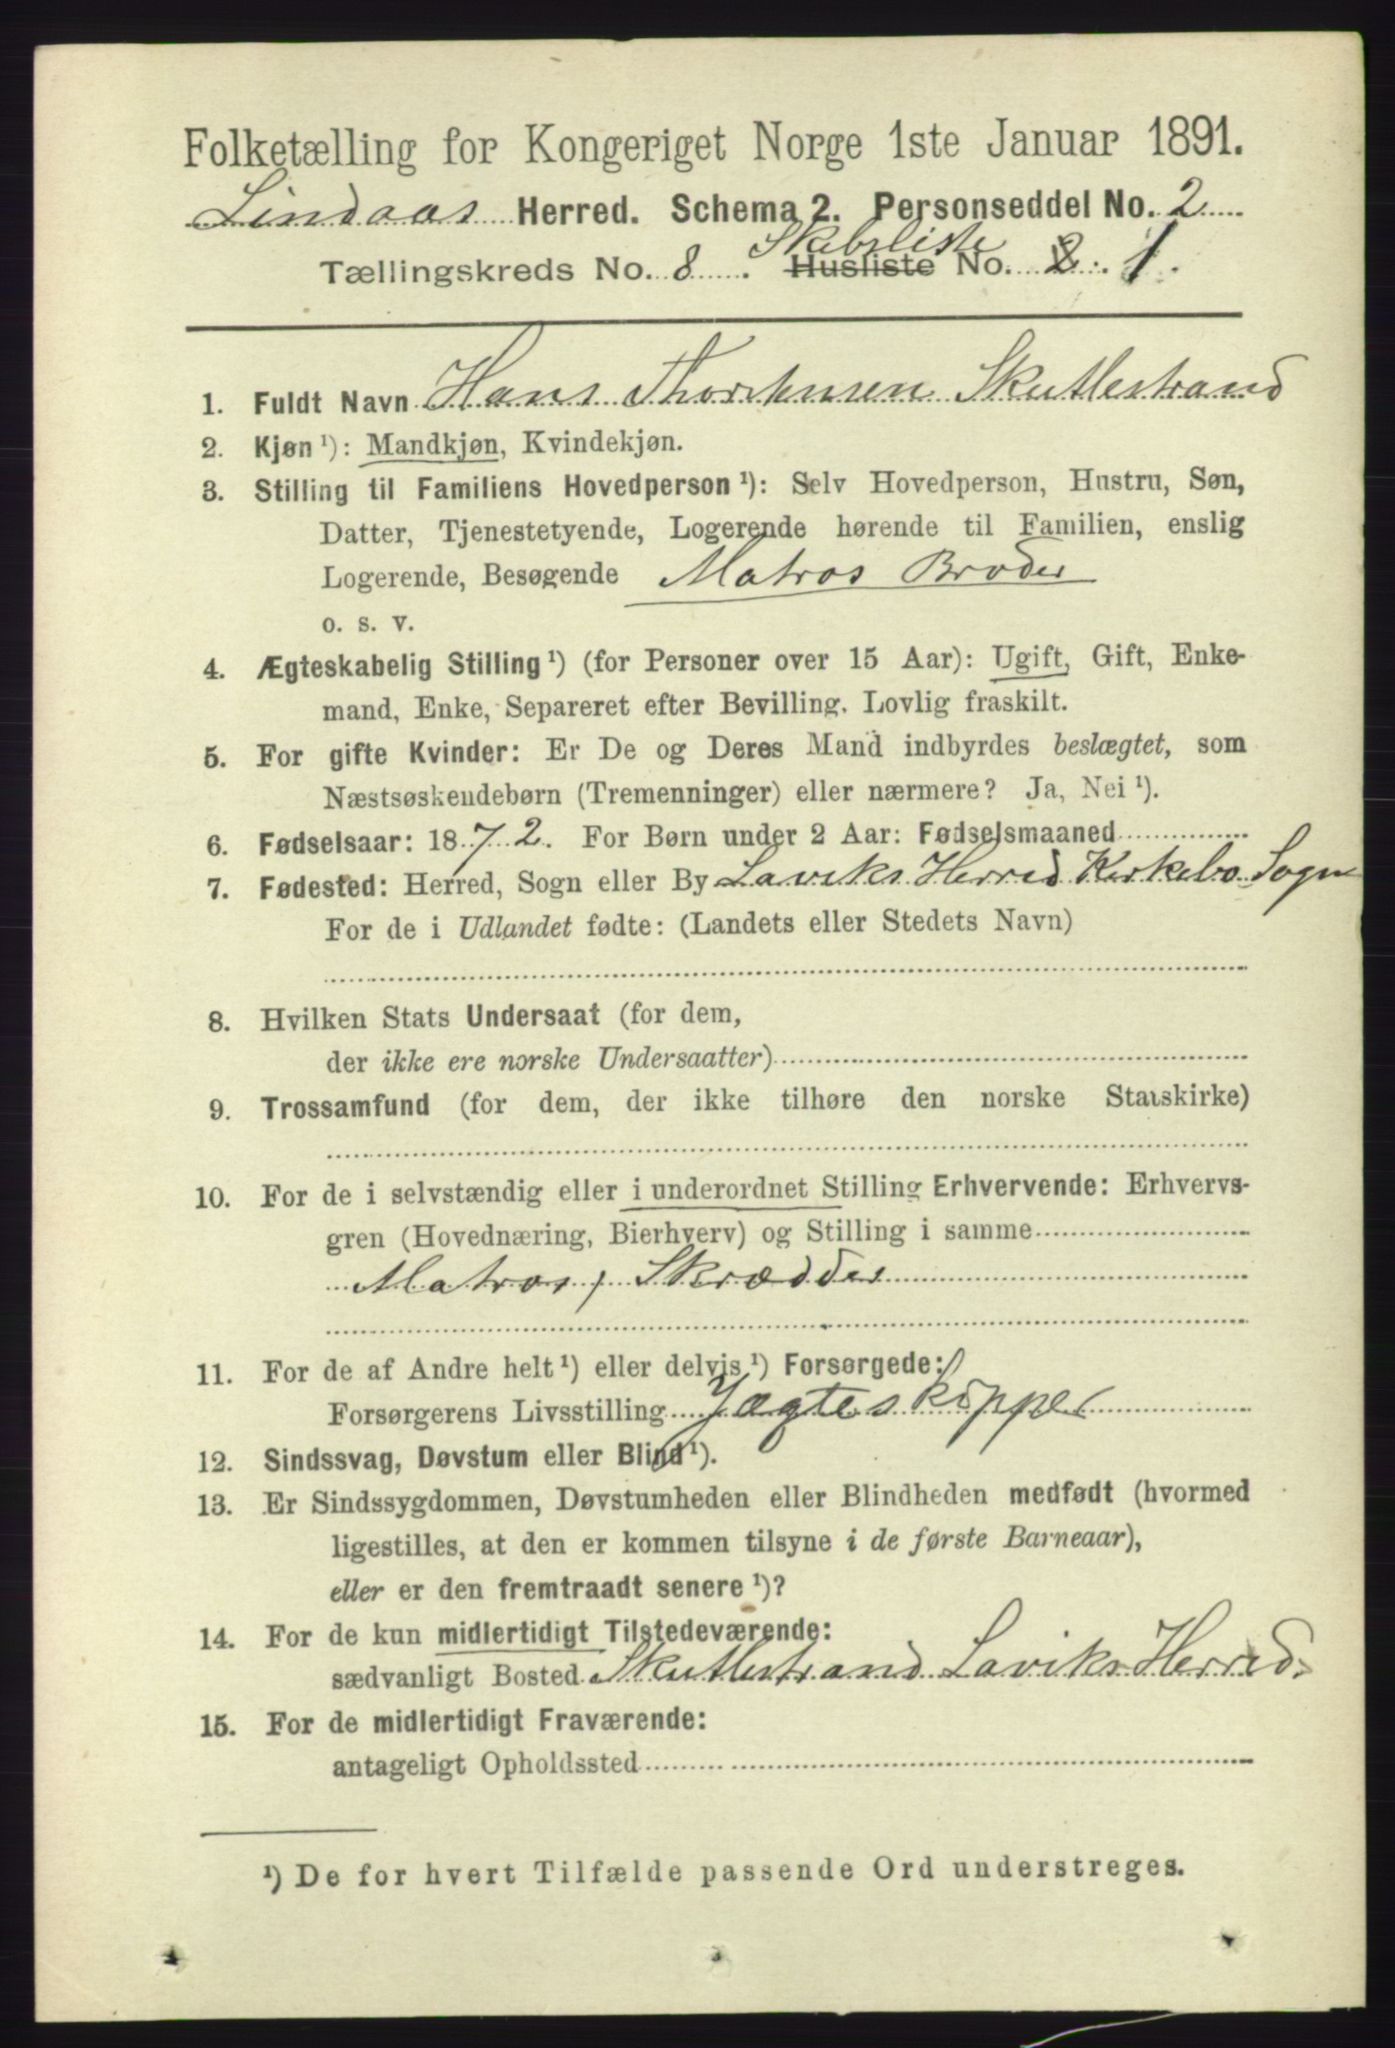 Folketælling for Kongeriget Norge 1ste Januar 1891.
Lindaas Herred. Schema 2. Personseddel No. 2
Skibsliste
Tællingskreds No. 8. Husliste No. 2. 1.
1. Fuldt Navn Hans Thorstensen Skutlestrand
2. Kjøn ¹): Mandkjøn, Kvindekjøn.
3. Stilling til Familiens Hovedperson ¹): Selv Hovedperson, Hustru, Søn,
Datter, Tjenestetyende, Logerende hørende til Familien, enslig
Logerende, Besøgende Matros Broder
o. s. v.
4. Ægteskabelig Stilling ¹) (for Personer over 15 Aar): Ugift, Gift, Enke-
mand, Enke, Separeret efter Bevilling. Lovlig fraskilt.
5. For gifte Kvinder: Er De og Deres Mand indbyrdes beslægtet, som
Næstsøskendebørn (Tremenninger) eller nærmere? Ja, Nei ¹).
6. Fødselsaar: 1872. For Børn under 2 Aar: Fødselsmaaned
7. Fødested: Herred, Sogn eller By Laviks Herred Kirkebo Sogn
For de i Udlandet fødte: (Landets eller Stedets Navn)
8. Hvilken Stats Undersaat (for dem,
der ikke ere norske Undersaatter)
9. Trossamfund (for dem, der ikke tilhøre den norske Statskirke)
10. For de i selvstændig eller i underordnet Stilling Erhvervende: Erhvervs-
gren (Hovednæring, Bierhverv) og Stilling i samme
Matros, Skrædder
11. For de af Andre helt ¹) eller delvis ¹) Forsørgede:
Forsørgerens Livsstilling Jægteskipper
12. Sindssvag, Døvstum eller Blind ¹).
13. Er Sindssygdommen, Døvstumheden eller Blindheden medfødt (hvormed
ligestilles, at den er kommen tilsyne i de første Barneaar),
eller er den fremtraadt senere ¹)?
14. For de kun midlertidigt Tilstedeværende:
sædvanligt Bosted Skutlestrand Laviks Herred.
15. For de midlertidigt Fraværende:
antageligt Opholdssted
¹) De for hvert Tilfælde passende Ord understreges.